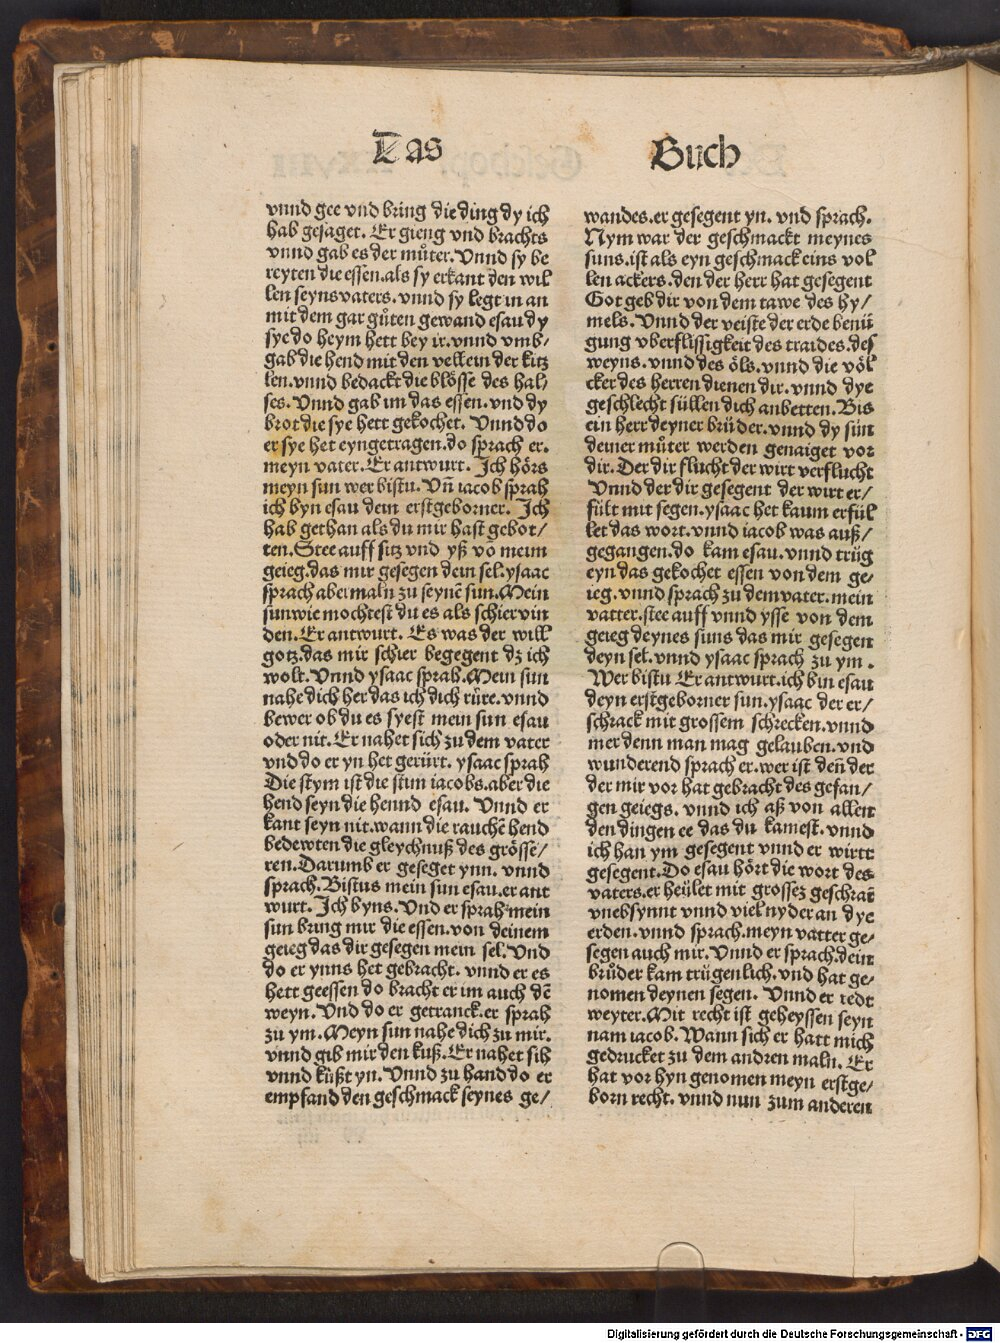 Das Buch
vnnd gee vnd bring die ding dy ich
hab gesaget. Er gieng vnd brachts
vnnd gab es der můter. Vnnd sy be
reyten die essen. als sy erkant den wil
len seyns vaters. vnnd sy legt in an
mit dem gar gůten gewand esau dy
sye do heym hett bey ir. vnnd vmb/
gab die hend mit den vellein der kitz
len. vnnd bedackt die blösse des hal/
ses. Vnnd gab im das essen. vnd dy
brot die sye hett gekochet. Vnnd do
er sye het eyngetragen. do sprach er.
meyn vater. Er antwurt. Ich hörs
meyn sun wer bistu. Vñ iacob sprah
ich byn esau dein erstgeborner. Ich
hab gethan als du mir hast gebot/
ten. Stee auff sitz vnd yß võ meim
geieg. das mir gesegen dein sel. ysaac
sprach aber maln zu seynẽ sun. Mein
sun wie mochtest du es als schier vin
den. Er antwurt. Es was der will
gotz. das mir schier begegent dz ich
wolt. Vnnd ysaac sprah. Mein sun
nahe dich her das ich dich rüre. vnnd
bewer ob du es syest mein sun esau
oder nit. Er nahet sich zu dem vater
vnd do er yn het gerürt. ysaac sprah
Die stym ist die stim iacobs. aber die
hend seyn die hennd esau. Vnnd er
kant seyn nit. wann die rauchẽ hend
bedewten die gleychnuß des grösse/
ren. Darumb er geseget ynn. vnnd
sprach. Bistus mein sun esau. er ant
wurt. Ich byns. Vnd er sprah mein
sun bring mir die essen. von deinem
geieg das dir gesegen mein sel. Vnd
do er ynns het gebracht. vnnd er es
hett geessen do bracht er im auch dẽ
weyn. Vnd do er getranck. er sprah
zu ym. Meyn sun nahe dich zu mir.
vnnd gib mir den kuß. Er nahet sih
vnnd küßt yn. Vnnd zu hand do er
empfand den geschmack seynes ge/
wandes. er gesegent yn. vnd sprach.
Nym war der geschmackt meynes
suns. ist als eyn geschmack eins vol
len ackers. den der herr hat gesegent
Got geb dir von dem tawe des hy/
mels. Vnnd der veiste der erde benü
gung vberflissigkeit des traides. des
weyns. vnnd des öls. vnnd die völ
cker des herren dienen dir. vnnd dye
geschlecht süllen dich anbetten. Bis
ein herr deyner brüder. vnnd dy sün
deiner můter werden genaiget vor
dir. Der dir flucht der wirt verflucht
Vnnd der dir gesegent der wirt er/
fült mit segen. ysaac het kaum erfül
let das wort. vnnd iacob was auß/
gegangen. do kam esau. vnnd trüg
eyn das gekochet essen von dem ge/
ieg. vnnd sprach zu dem vater. mein
vatter. stee auff vnnd ysse von dem
geieg deynes suns das mir gesegen
deyn sel. vnnd ysaac sprach zu ym.
Wer bistu Er antwurt. ich bin esau
deyn erstgeborner sun. ysaac der er/
schrack mit grossem schrecken. vnnd
mer denn man mag gelauben. vnd
wunderend sprach er. wer ist deñ der
der mir vor hat gebracht des gefan/
gen geiegs. vnnd ich aß von allen
den dingen ee das du kamest. vnnd
ich han ym gesegent vnnd er wirtt
gesegent. Do esau hört die wort des
vaters. er heület mit grossez geschrai
vnebsynnt vnnd viel nyder an dye
erden. vnnd sprach. meyn vatter ge/
segen auch mir. Vnnd er sprach. dein
brůder kam trügenlich. vnd hat ge/
nomen deynen segen. Vnnd er redt
weyter. Mit recht ist geheyssen seyn
nam iacob. Wann sich er hatt mich
gedrucket zu dem andren maln. Er
hat vor hyn genomen meyn erstge/
born recht. vnnd nun zum anderen
Digitalisierung gefördert durch die Deutsche Forschungsgemeinschaft - DFG